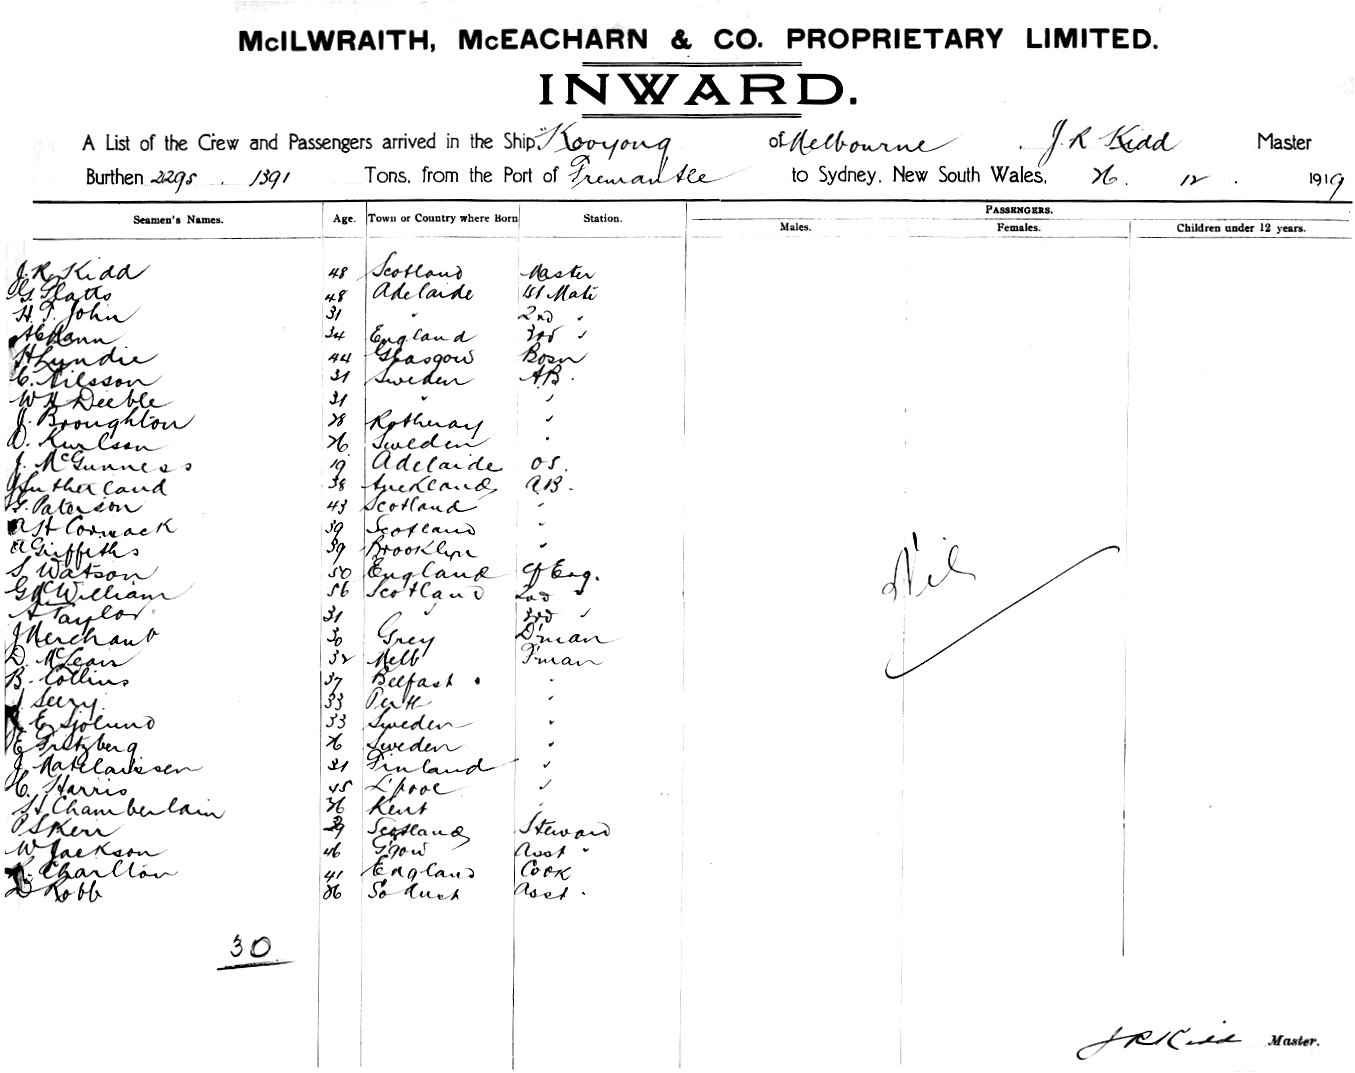 McILWRAITH, McEACHARN & CO. PROPRIETARY LIMITED.
INWARD.
A List of the Crew and Passengers arrived in the Ship "Kooyong of Melbourne . J. R Kidd Master
Burthen 2295 . 1391 Tons, from the Port of Fremantle to Sydney, New South Wales, 26 . 12 . 1919
PASSENGERS.
Seamen's Names. Age. Town or Country where Born Station. Males. Females. Children under 12 years.
J. R. Kidd 48 Scotland Master
G. Platts 48 Adelaide 1st Mate
H. T. John 31 " 2nd "
Mann 34 England 3rd "
H Lyndie 44 Glasgow Bosn
C. Nilsson 31 Sweden AB.
W H Deeble 31 " "
J. Broughton 28 Rothesay "
D. Kurlson 26 Sweden "
J. McGunness 19 Adelaide OS.
J Sutherland 38 Auckland AB.
G. Paterson 43 Scotland "
A H Cormack 39 Scotland "
A Griffiths 39 Brooklyn "
S Watson 50 England Cf Eng.
G McWilliam 56 Scotland 2nd "
A Taylor 31 " 3rd "
J Merchant 30 Grey D'man
D. McLean 32 Melb F'man
B. Collins 37 Belfast "
J Seery 33 Perth "
J E Sjolund 33 Sweden "
E Fritzberg 26 Sweden "
J. 31 Finland "
C. Harris 45 L'pool "
H Chamberlain 26 Kent "
P S Kerr 29 Scotland Steward
W Jackson 46 G'gow Asst "
Charlton 41 England Cook
D Robb 26 Asst .
Nil
30
J R Kidd Master.